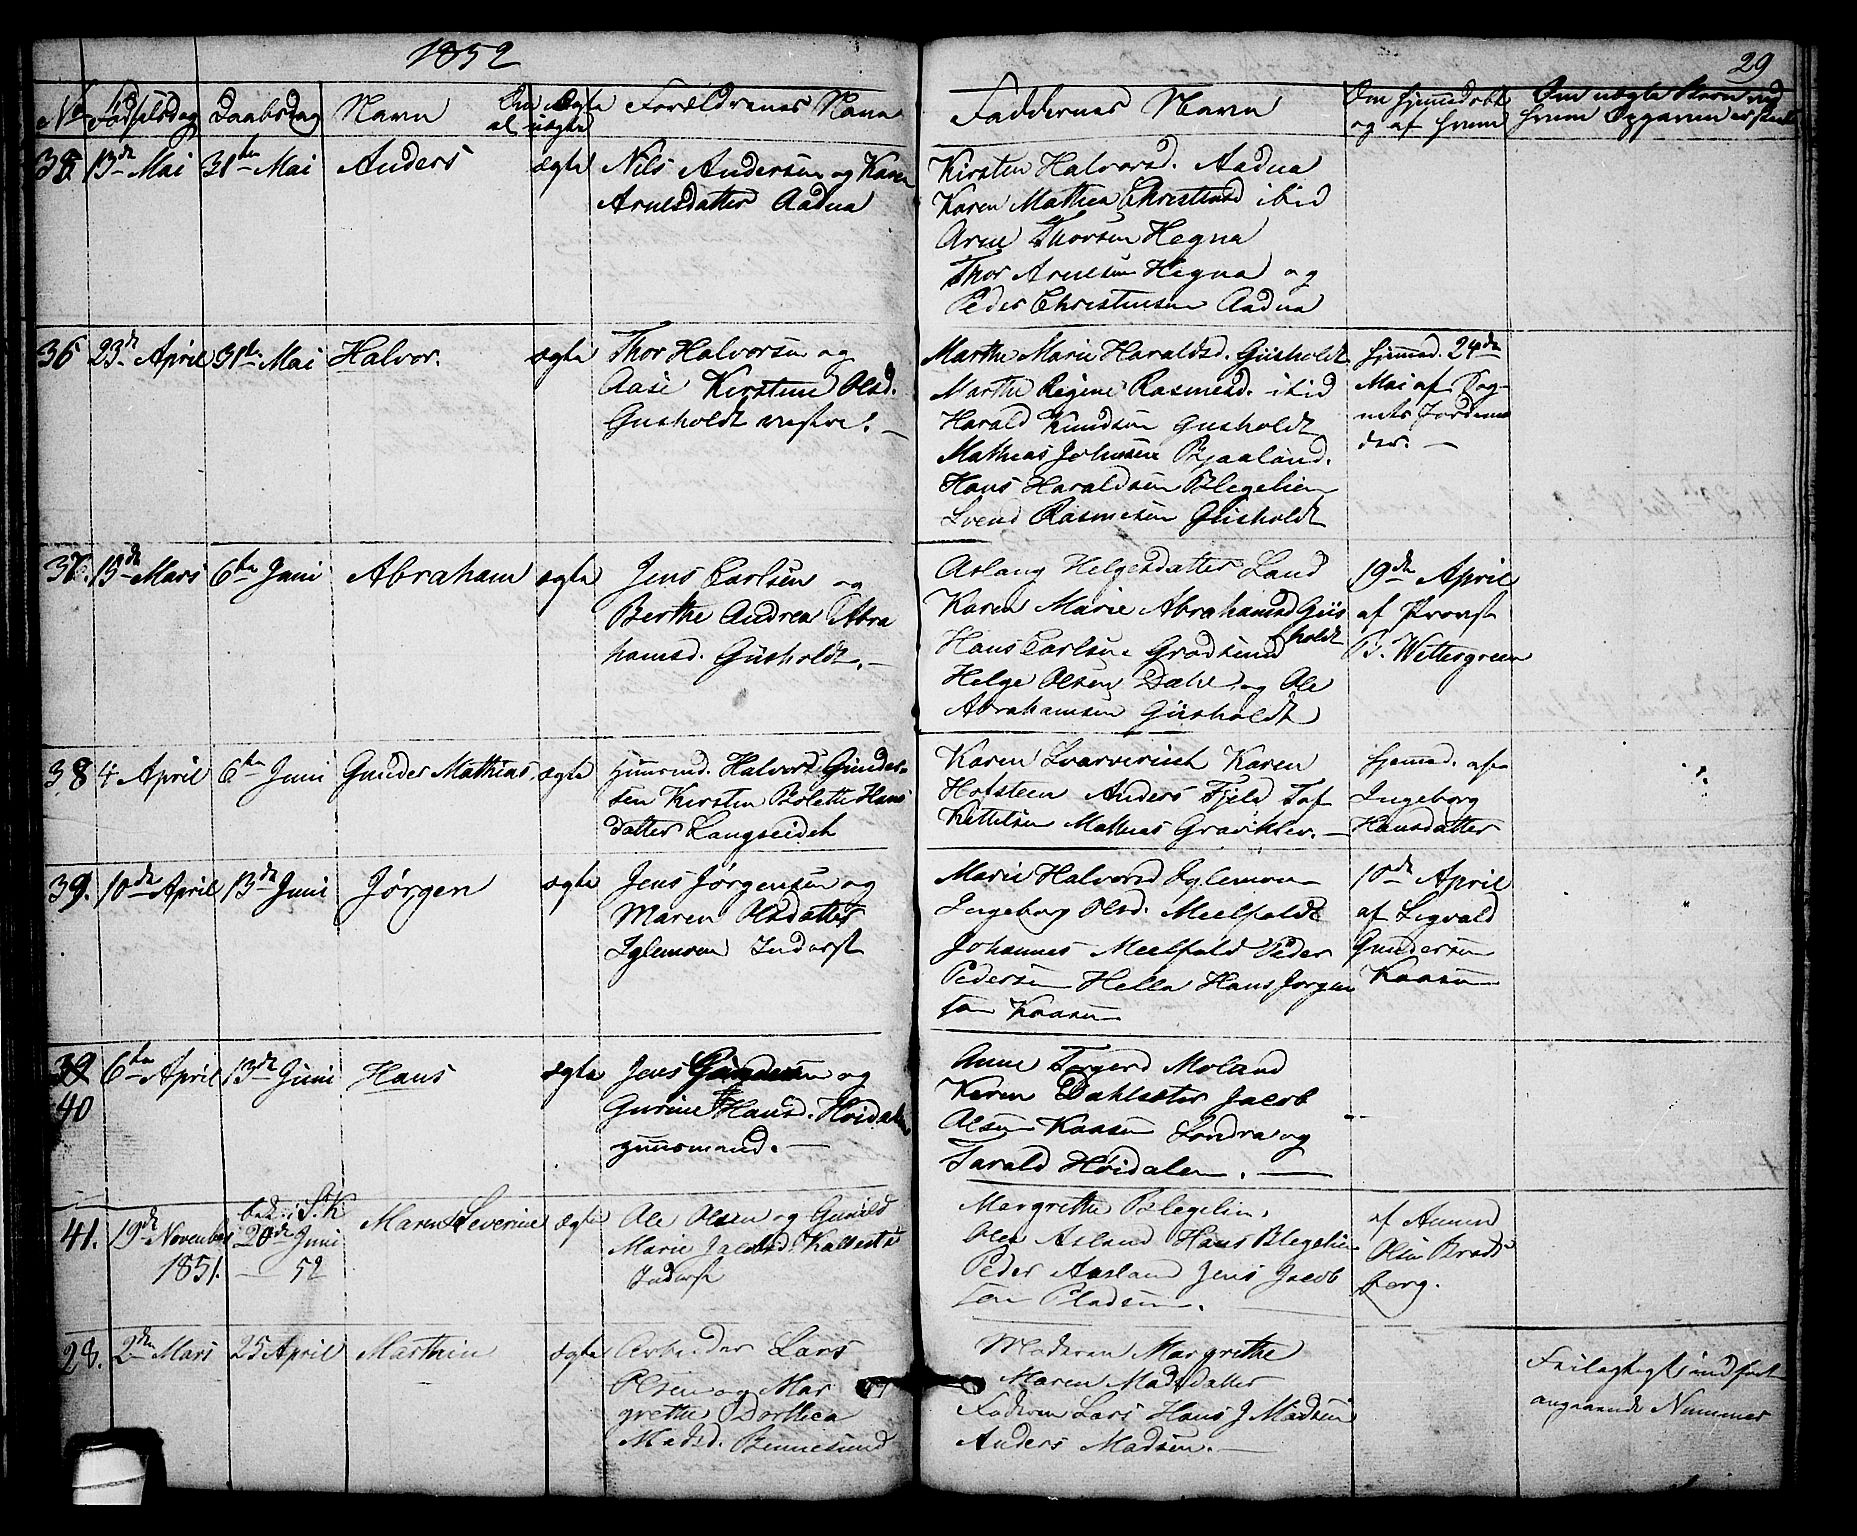 1852
29
No Fødselsdag Daabsdag Navn Om Ægte el. uægte Forældrenes Navn Faddernes Navn Om hjemmedøbt og af hvem Om uægte Barn ved hvem Opgaven er skeet
35 13de Mai 31te Mai Anders ægte Nils Andersen og Karen
Arnesdatter Aadna
Kirsten Halvorsd. Aadna
Karen Mathea Christensd ibid
Arne Thorsen Hegna
Thor Arnesen Hegna og
Peder Christensen Aadna
36 23de April 31te Mai Halvor. ægte Thor Halvorsen og
Aase Kirstine Olsd.
Gusholdt vestre. —
Marthe Marie Haraldsd. Gusholdt
Marthe Regine Rasmusd. ibid
Harald Knudsen Gusholdt
Mathias Johnsen Bjaaland.
Hans Haraldsen Blegelien
Svend Rasmusen Gusholdt
hjemmed. 24de
Mai af Sog-
nets Jordemo
der. —
37. 13de Mars 6te Juni Abraham ægte Jens Carlsen og
Berthe Andrea Abra
hamsd. Gusholdt. —
Aslaug Helgesdatter Land
Karen Marie Abrahamsd Gus
holdt
Hans Carlsen Gradsund
Helge Olsen Dahl og Ole
Abrahamsen Gusholdt
19de April
af Provst
B. Wettergreen
38 4 April 6te Juni Gunder Mathias ægte Halvord Gunder-
sen Kirsten Bolette Hans
datter Langseideh
Karen Karen
Hofsteen Anders Fjeld Taf
Kittelsen Mathias Gravklev. —
hjemmed. af
Ingeborg
Hansdatter
39. 10de April 13de Juni Jørgen ægte Jens Jørgensen og
Maren Olsdatter
Iglemoen Inderst
Marie Halvorsd Iglemoen
Ingeborg Olsd. Meelfald
Johannes Meelfald Peder
Pedersen Hella Hans Jørgen
sen Kaasen
10de April
af Sigvald
Gundersen
Kaasen
39 6te April 13de Juni Hans ægte Jens Gundersen og
40 Gurine Hansd. Høidalen
Anne Torgersd Moland
Karen Dahlsæter Jacob
Olsen Kaasen Søndra og
Tarald Høidalen. —
41. 19de November 20de Juni Maren Severine ægte Ole Olsen og Gunild
1851. — 52 Marie Jacobsd. Kalvesta
Inderst
Margrethe Blegelien.
Ole Asland Hans Blegelien
Peder Aasland Jens Jacob
sen Pladsen.
af Amund
Olsen Brads
berg.
28. 2den Mars 25 April Marthin ægte Arbeider Lars
Olsen og Mar
grethe Dorthea
Madsd. Bennesund
Moderen Margrethe
Maren Madsdatter
Faderen Lars Hans J Madsen
Anders Madsen. —
Feilagtigt indført
angaaende Nummer